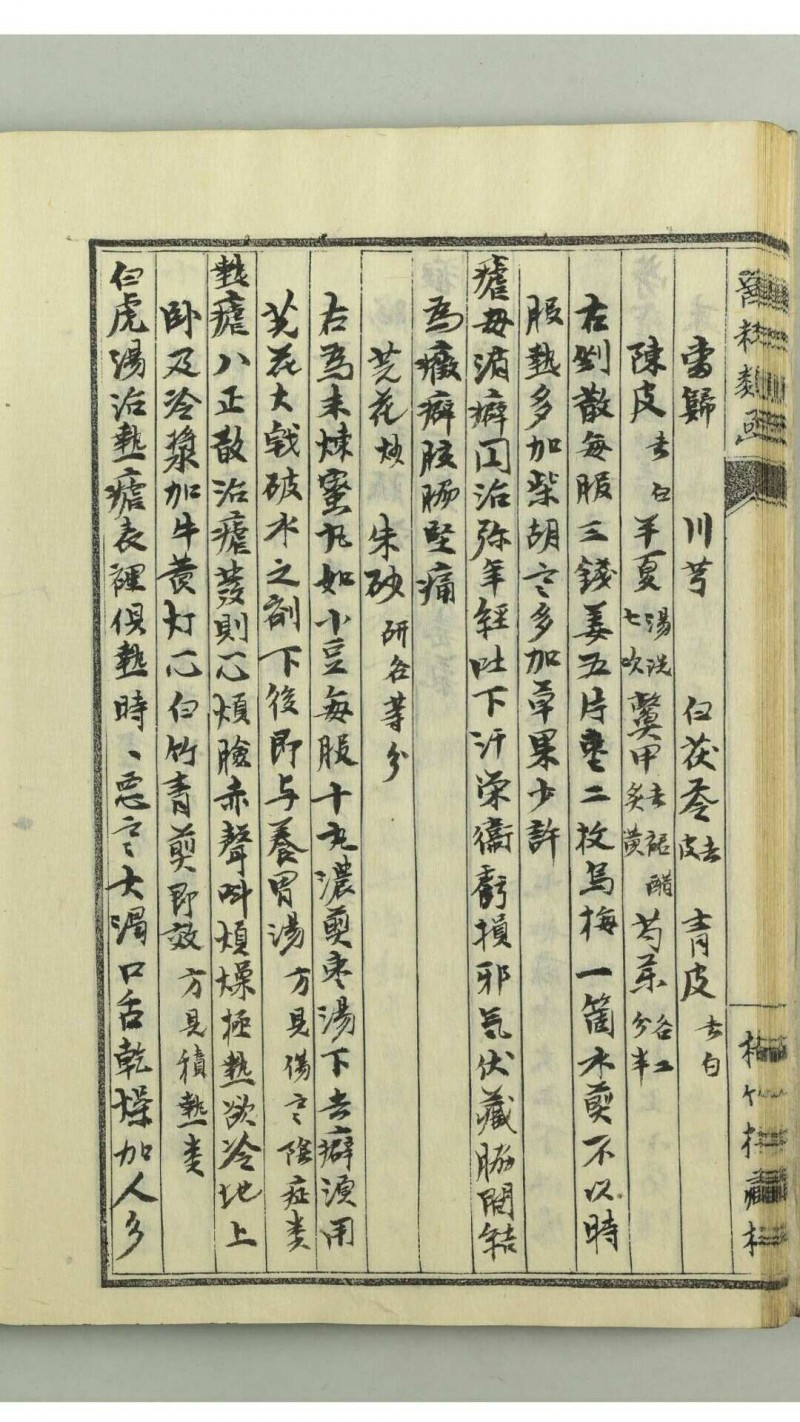 當歸 川芎 白茯苓去皮 青皮去白
陳皮去白 半夏湯洗七次 鱉甲去裙醋炙黃 芍藥各二分半
右剉散每服三錢姜五片棗二枚烏梅一箇水煎不以時
服熱多加柴胡寒多加草果少許
瘧母消癖圓治弥年經吐下汗榮衛虧損邪氣伏藏脇間結
為癥癖腹脇堅痛
芫花炒 朱砂研各等分
右為末煉蜜丸如小豆每服十丸濃煎枣湯下去癖須用
芫花大戟破水之劑下後即与養胃湯方見傷寒陰症类
熱瘧八正散治瘧發則心煩臉赤聲叫煩燥極熱欲冷地上
卧及冷漿加牛黄灯心白竹青煎即效方見積熱类
白虎湯治熱瘧表裡俱熱時丶惡寒大渴口舌乾燥加人参